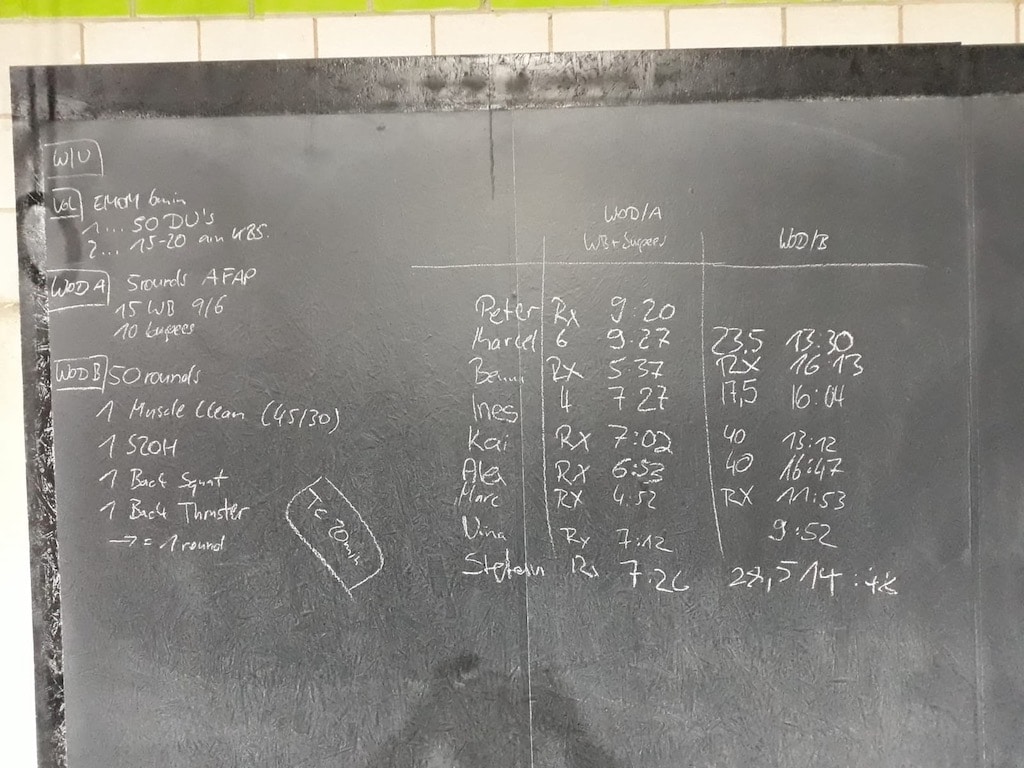 W/U
VOL EMOM 6min
1... 50 DU's
2... 15-20 am KBS.
WOD A 5rounds AFAP
15 WB 9/6
10 burpees
WOD B 50 rounds
1 Muscle Clean (45/30)
1 S2OH
1 Back Squat
1 Back Thruster
→ = 1 round
TC 20min
WOD/A
WB + burpees WOD/B
Peter Rx 9:20
Marcel 6 9:27 23,5 13:30
Benni RX 5:37 RX 16:13
Ines 4 7 27 17,5 16:04
Kai RX 7:02 40 13:12
Alex RX 6:53 40 16:47
Marc RX 4:52 RX 11:53
Nina Rx 7:12 9:52
Stefan Rx 7:26 ,5 14:48